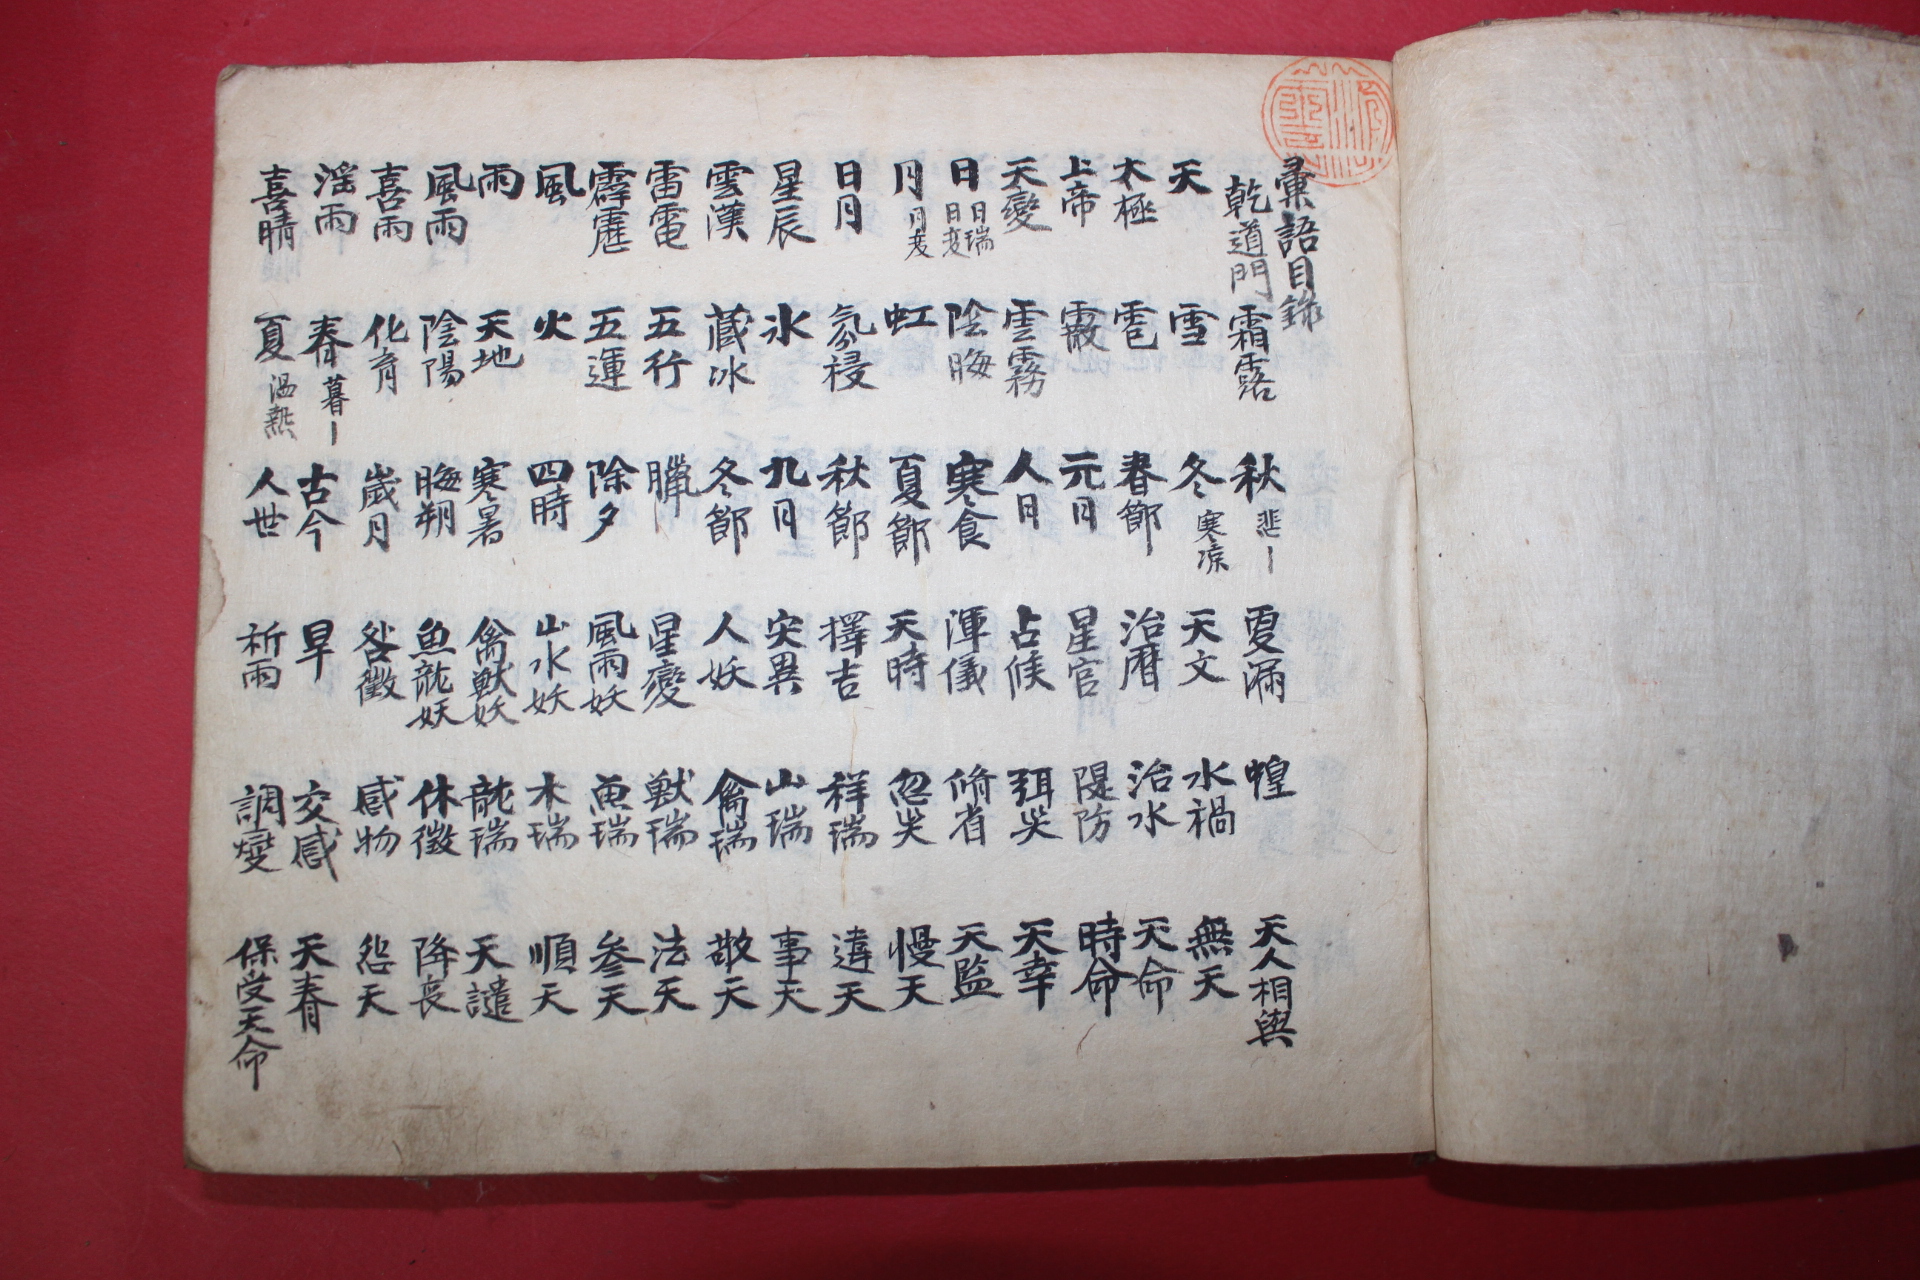 彙語目錄
乾道門
天 太極 上帝 天變 日 日瑞 日変 月 月変 日月 星辰 雲漢 雷電 霹靂 風 雨 風雨 喜雨 淫雨 喜晴
霜露 雪 雹 霰 雲霧 陰晦 虹 氛祲 氷 藏冰 五行 五運 火 天地 陰陽 化育 春 暮〡 夏 温熱
秋 悲〡 冬 寒凉 春節 元日 人日 寒食 夏節 秋節 九日 冬節 臘 除夕 四時 寒暑 晦朔 歲月 古今 人世
更漏 天文 治曆 星官 占候 渾儀 天時 擇吉 灾異 人妖 星變 風雨妖 山水妖 禽獸妖 魚龍妖 咎徵 旱 祈雨
蝗 水禍 治水 隄防 弭灾 脩省 忽灾 祥瑞 山瑞 禽瑞 獸瑞 魚瑞 木瑞 龍瑞 休徵 感物 交感 調燮
天人相與 無天 天命 時命 天幸 天監 慢天 違天 事天 敬天 法天 叅天 順天 天譴 降喪 怨天 天眷 保受天命